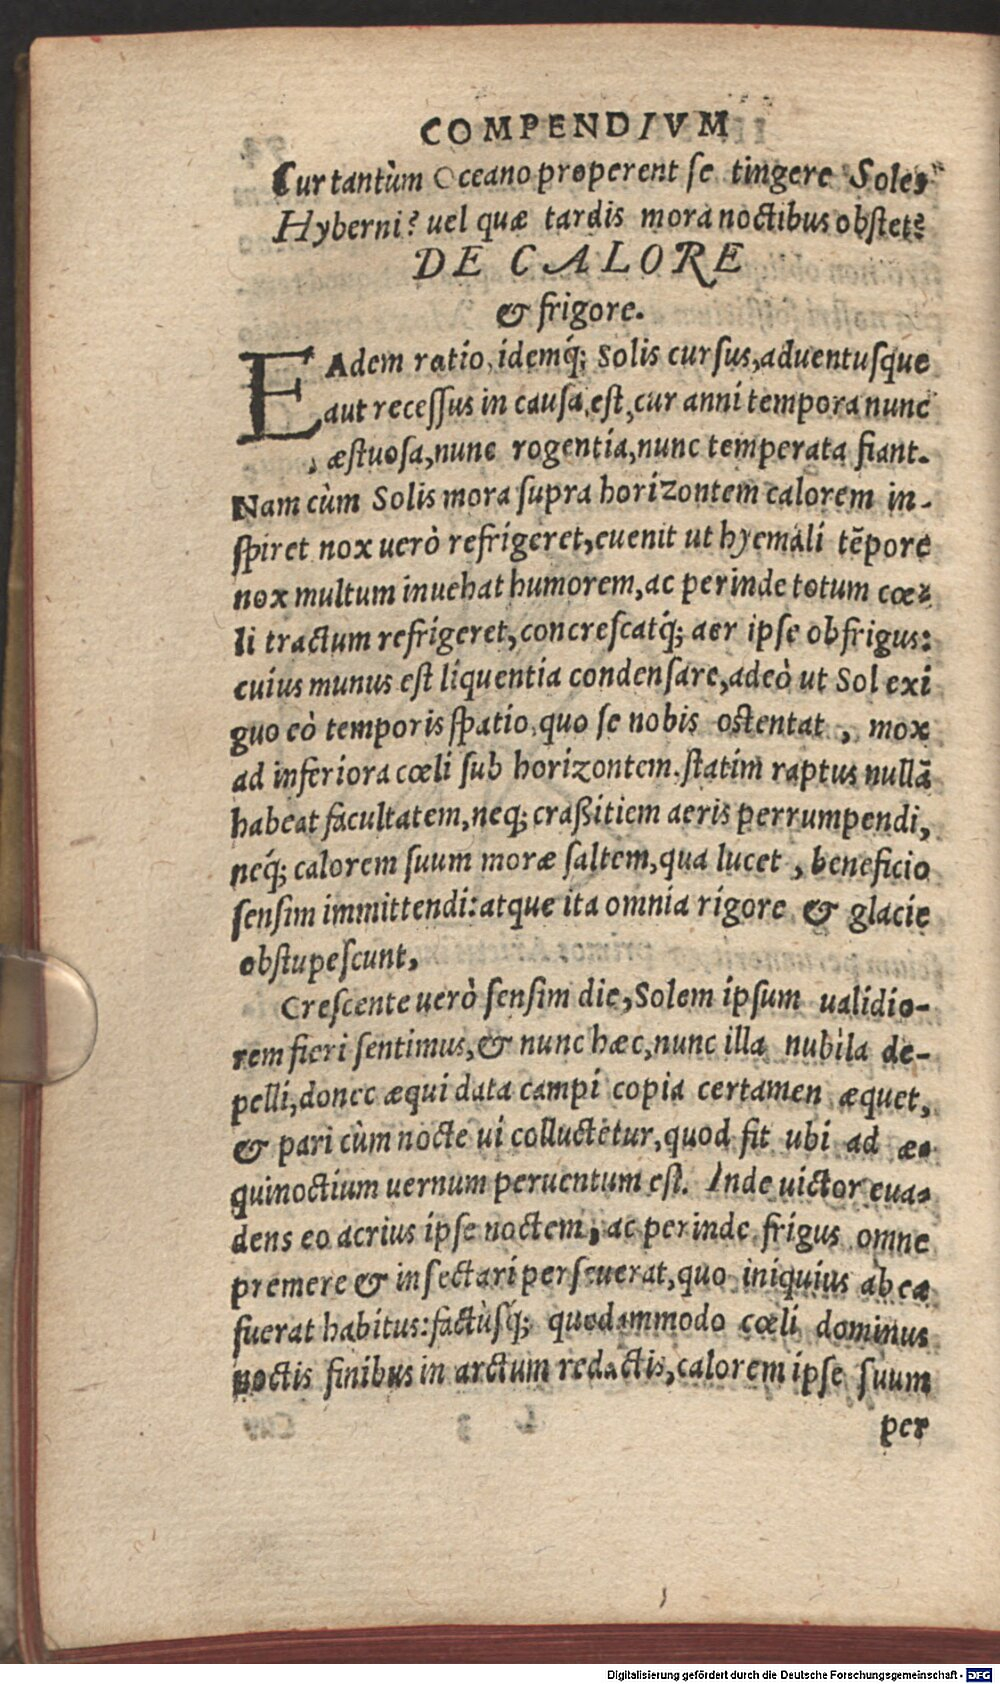 COMPENDIVM
Cur tantùm Oceano properent se tingere Soles
Hyberni? uel quæ tardis mora noctibus obstet?
DE CALORE
& frigore.
EAdem ratio, idemq́; Solis cursus, aduentusque
aut recessus in causa est, cur anni tempora nunc
æstuosa, nunc rogentia, nunc temperata fiant.
Nam cùm Solis mora supra horizontem calorem in-
spiret nox uerò refrigeret, euenit ut hyemali tẽpore
nox multum inuehat humorem, ac perinde totum cœ-
li tractum refrigeret, concrescatq́; aer ipse ob frigus:
cuius munus est liquentia condensare, adeò ut Sol exi
guo eò temporis spatio, quo se nobis ostentat, mox
ad inferiora cœli sub horizontem statim raptus nullã
habeat facultatem, neq; craßitiem aeris perrumpendi,
neq́; calorem suum moræ saltem, qua lucet, beneficio
sensim immittendi: atque ita omnia rigore & glacie
obstupescunt,
Crescente uerò sensim die, Solem ipsum ualidio-
rem fieri sentimus, & nunc hæc, nunc illa nubila de-
pelli, donec æqui data campi copia certamen æquet,
& pari cùm nocte ui colluctetur, quod fit ubi ad æ-
quinoctium uernum peruentum est. Inde uictor eua-
dens eo acrius ipse noctem, ac perinde frigus omne
premere & insectari perseuerat, quo iniquius ab ea
fuerat habitus: factùsq́; quodammodo cœli dominus
noctis finibus in arctum redactis, calorem ipse suum
per
Digitalisierung gefördert durch die Deutsche Forschungsgemeinschaft - DFG